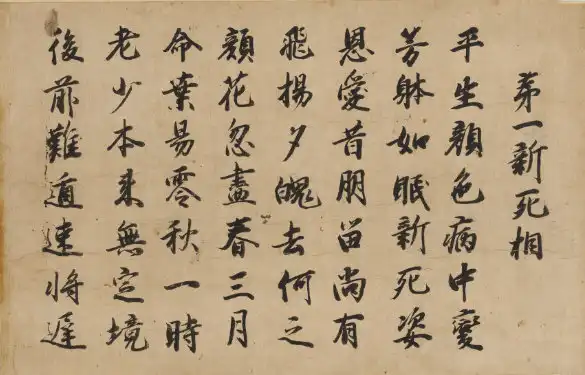 苐一新死相
平生顔色病中衰
芳躰如眠新死姿
恩愛昔朋留尚有
飛揚夕魄去何之
顔花忽盡春三月
命葉易零秋一時
老少本来無定境
後前難遁速将遅